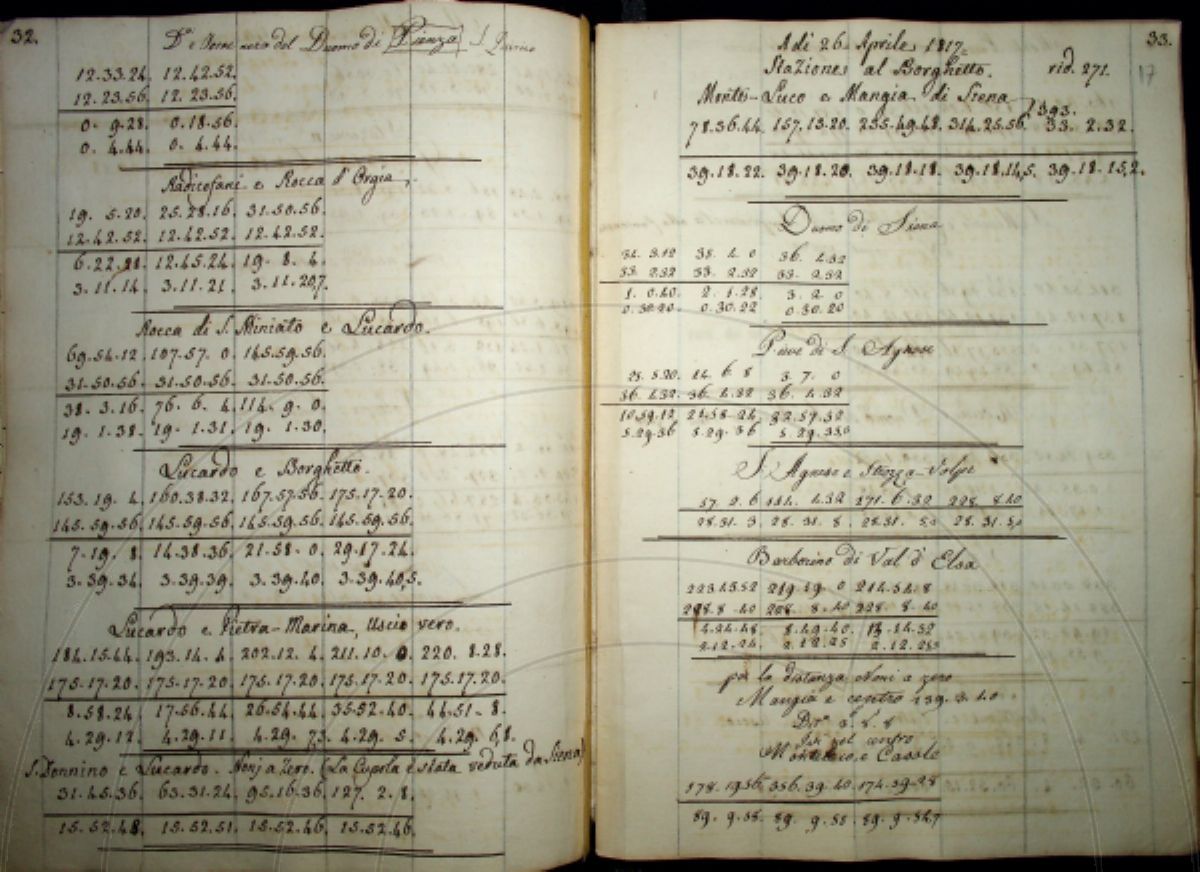 32.
Duomo di Pienza
12.33.24. 12.42.52.
12.23.56. 12.23.56.
0. 9.28. 0.18.56.
0. 4.44. 0. 4.44.
Radicofani e Rocca d'Orgia.
19. 5.20. 25.28.16. 31.50.56.
12.42.52. 12.42.52. 12.42.52.
6.22.28. 12.45.24. 19. 8. 4.
3.11.14. 3.11.21. 3.11.20,7.
Rocca di S. Miniato e Lucardo.
69.54.12. 107.57. 0. 145.59.56.
31.50.56. 31.50.56. 31.50.56.
38. 3.16. 76. 6. 4. 114. 9. 0.
19. 1.38. 19. 1.31. 19. 1.30.
Lucardo e Borghetto.
153.19. 4. 160.38.32. 167.57.56. 175.17.20.
145.59.56. 145.59.56. 145.59.56. 145.59.56.
7.19. 8. 14.38.36. 21.58. 0. 29.17.24.
3.39.34. 3.39.39. 3.39.40. 3.39.40,5.
Lucardo e Pietra-Marina, Uscio vero.
184.15.44. 193.14. 4. 202.12. 4. 211.10. 0. 220. 8.28.
175.17.20. 175.17.20. 175.17.20. 175.17.20. 175.17.20.
8.58.24. 17.56.44. 26.54.44. 35.52.40. 44.51. 8.
4.29.12. 4.29.11. 4.29. 7,3. 4.29. 5. 4.29. 6,8.
S. Donnino e Lucardo. Nonj a Zero. (La Cupola è stata veduta da Siena)
31.45.36. 63.31.24. 95.16.36. 127. 2. 8.
15.52.48. 15.52.51. 15.52.46. 15.52.46.
33.
17
Adì 26 Aprile 1817.
Stazione al Borghetto. rid. 271.
Monte-Luco e Mangia di Siena
393.
78.36.44. 157.13.20. 235.49.48. 314.25.56. 33. 2.32.
39.18.22. 39.18.20. 39.18.18. 39.18.14,5. 39.18.15,2.
Duomo di Siena
34. 3.12 35. 4. 0 36. 4.32
33. 2.32 33. 2.32 33. 2.32
1. 0.40. 2. 1.28. 3. 2. 0
0.30.20. 0.30.22 0.30.20
Pieve di S. Agnese
25. 5.20. 14. 6. 8 3. 7. 0
36. 4.32. 36. 4.32 36. 4.32
10.59.12 21.58.24 32.57.32
5.29.36 5.29.36
S. Agnese e Stozza-Volpe
57. 2. 6 171. 6.32 228. 8.40
28.31. 3 28.31. 8
Barberino di Val d'Elsa
223.43.52 219.19. 0 214.54. 8
228. 8.40 228. 8.40 228. 8.40
4.24.48. 8.49.40. 13.14.32
2.12.24. 2.12.25
per la distanza Noni a zero
Mangia e centro 139.3.40
e Casale
178.19.56 356.39.40 174.59.28
89. 9.58. 89. 9.55